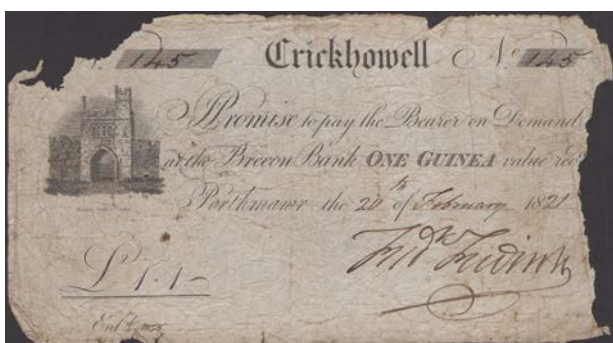 145 Crickhowell No. 145
I Promise to pay the Bearer on Demand
at the Brecon Bank ONE GUINEA value rec
Porthmawr the 20th of February 1821
£1.1-